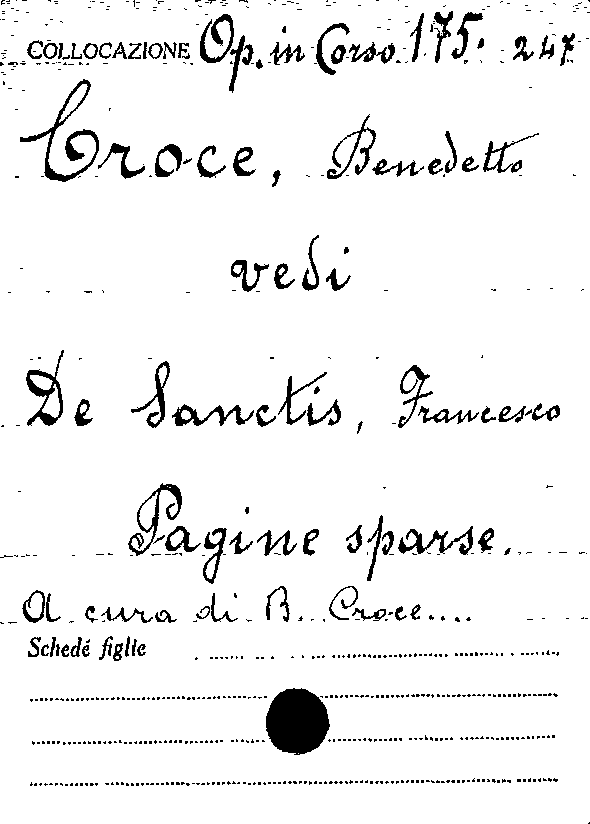 COLLOCAZIONE Op. in Corso 175. 247
Croce, Benedetto
vedi
De Sanctis, Francesco
Pagine sparse.
A cura di B. Croce....
Schede figlie